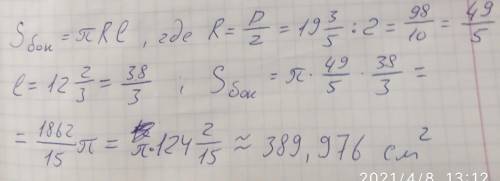 S бок = πRl, где R = D/2 = 19 3/5 : 2 = 98/10 = 49/5
l = 12 2/3 = 38/3 ; S бок = π · 49/5 · 38/3 =
= 1862/15 π = π · 124 2/15 ≈ 389,976 см²
2021/4/8 13:12